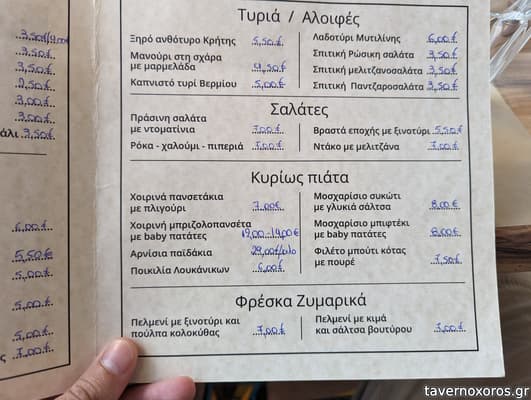 3,50€/4,00€
3,50€
3,50€
2,50€
3,00€
3,00€
άλι 3,50€
6,00€
5,50€
5,00€
5,00€
5,00€
ς 7,00€
Τυριά / Αλοιφές
Ξηρό ανθότυρο Κρήτης 5,50€
Μανούρι στη σχάρα
με μαρμελάδα 4,50€
Καπνιστό τυρί Βερμίου 5,00€
Λαδοτύρι Μυτιλίνης 6,00€
Σπιτική Ρώσικη σαλάτα 3,50€
Σπιτική μελιτζανοσαλάτα 3,50€
Σπιτική Παντζαροσαλάτα 3,50€
Σαλάτες
Πράσινη σαλάτα
με ντοματίνια 7,00€
Ρόκα - χαλούμι - πιπεριά 7,00€
Βραστά εποχής με ξινοτύρι 5,50€
Ντάκο με μελιτζάνα 7,00€
Κυρίως πιάτα
Χοιρινά πανσετάκια
με πλιγούρι 7,00€
Χοιρινή μπριζολοπανσέτα
με baby πατάτες
Αρνίσια παϊδάκια
Ποικιλία Λουκάνικων 6,00€
Μοσχαρίσιο συκώτι
με γλυκιά σάλτσα 8,00€
Μοσχαρίσιο μπιφτέκι
με baby πατάτες 8,00€
Φιλέτο μπούτι κότας
με πουρέ 7,50€
Φρέσκα Ζυμαρικά
Πελμενί με ξινοτύρι και
πούλπα κολοκύθας 7,00€
Πελμενί με κιμά
και σάλτσα βουτύρου 7,00€
tavernoxoros.gr